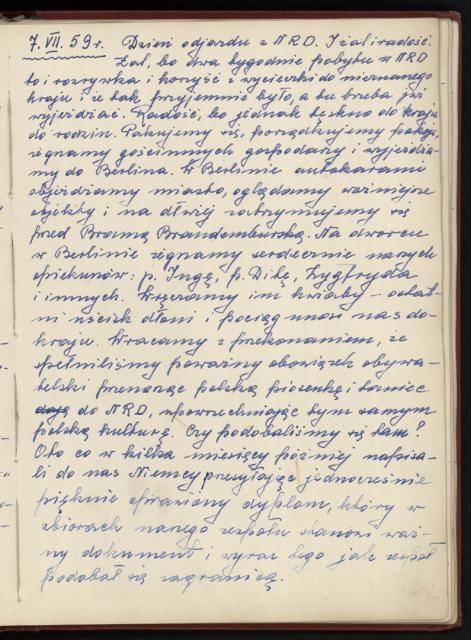 7.VII.59r. Dzień odjazdu z NRD. I żal i radość.
Żal, bo dwa tygodnie pobytu w NRD
to i rozrywka i korzyść z wycieczki do nieznanego
kraju i że tak przyjemnie było, a tu trzeba już
wyjeżdżać. Radość, bo jednak tęskno do kraju
do rodzin. Pakujemy się, porządkujemy pokoje,
żegnamy gościnnych gospodarzy i wyjeżdża-
my do Berlina. W Berlinie autokarami
objeżdżamy miasto, oglądamy ważniejsze
objekty i na dłużej zatrzymujemy się
przed Bramą Brandenburską. Na dworcu
w Berlinie żegnamy serdecznie naszych
opiekunów: p. Ingę, p. Zygfryda
i innych. Wręczamy im kwiaty – ostat-
ni uścisk dłoni i pociąg unosi nas do
kraju. Wracamy z przekonaniem, że
spełniliśmy poważny obowiązek obywa-
telski przenosząc polską piosenkę i taniec
do NRD, upowszechniając tym samym
polską kulturę. Czy podobaliśmy się tam?
Oto co w kilka miesięcy później napisa-
li do nas Niemcy przesyłając jednocześnie
pięknie oprawiony dyplom, który w
zbiorach naszego zespołu stanowi waż-
ny dokument i wyraz tego jak zespół
podobał się zagranicą.